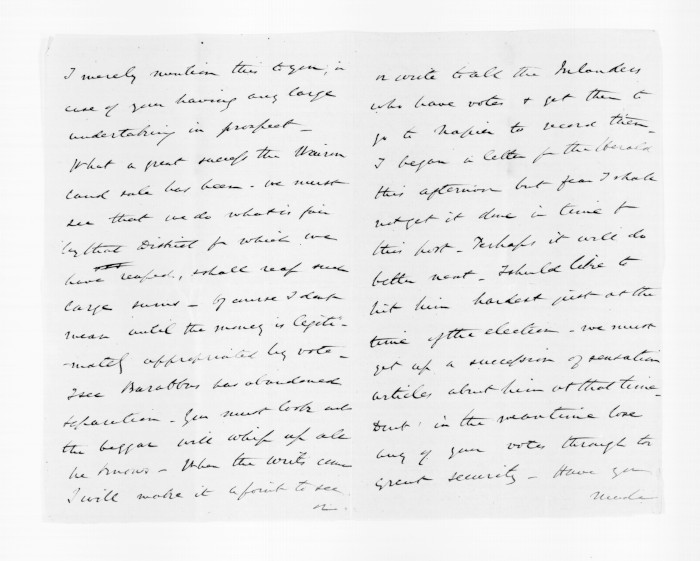 I merely mention this to you, in
case of your having any large
undertaking in prospect –
What a great success the Wairoa
land sale has been. We must
see that we do what is fair
by that District for which we
have reaped, & shall reap such
large sums – Of course I don't
mean until the money is legiti-
mately appropriated by vote –
I see Barabbas has abandoned
separation – You must look out
the beggar will whip up all
he knows – When the writs come
I will make it a point to see
or
or write to all the Inlanders
who have votes & get them to
go to Napier to record them –
I began a letter for the Herald
this afternoon but fear I shall
not get it done in time for
this post – Perhaps it will do
better next – I should like to
hit him hardest just at the
time of the election – we must
get up a succession of sensation
articles about him at that time –
Don't in the meantime lose
any of your votes through too
great security – Have you
made